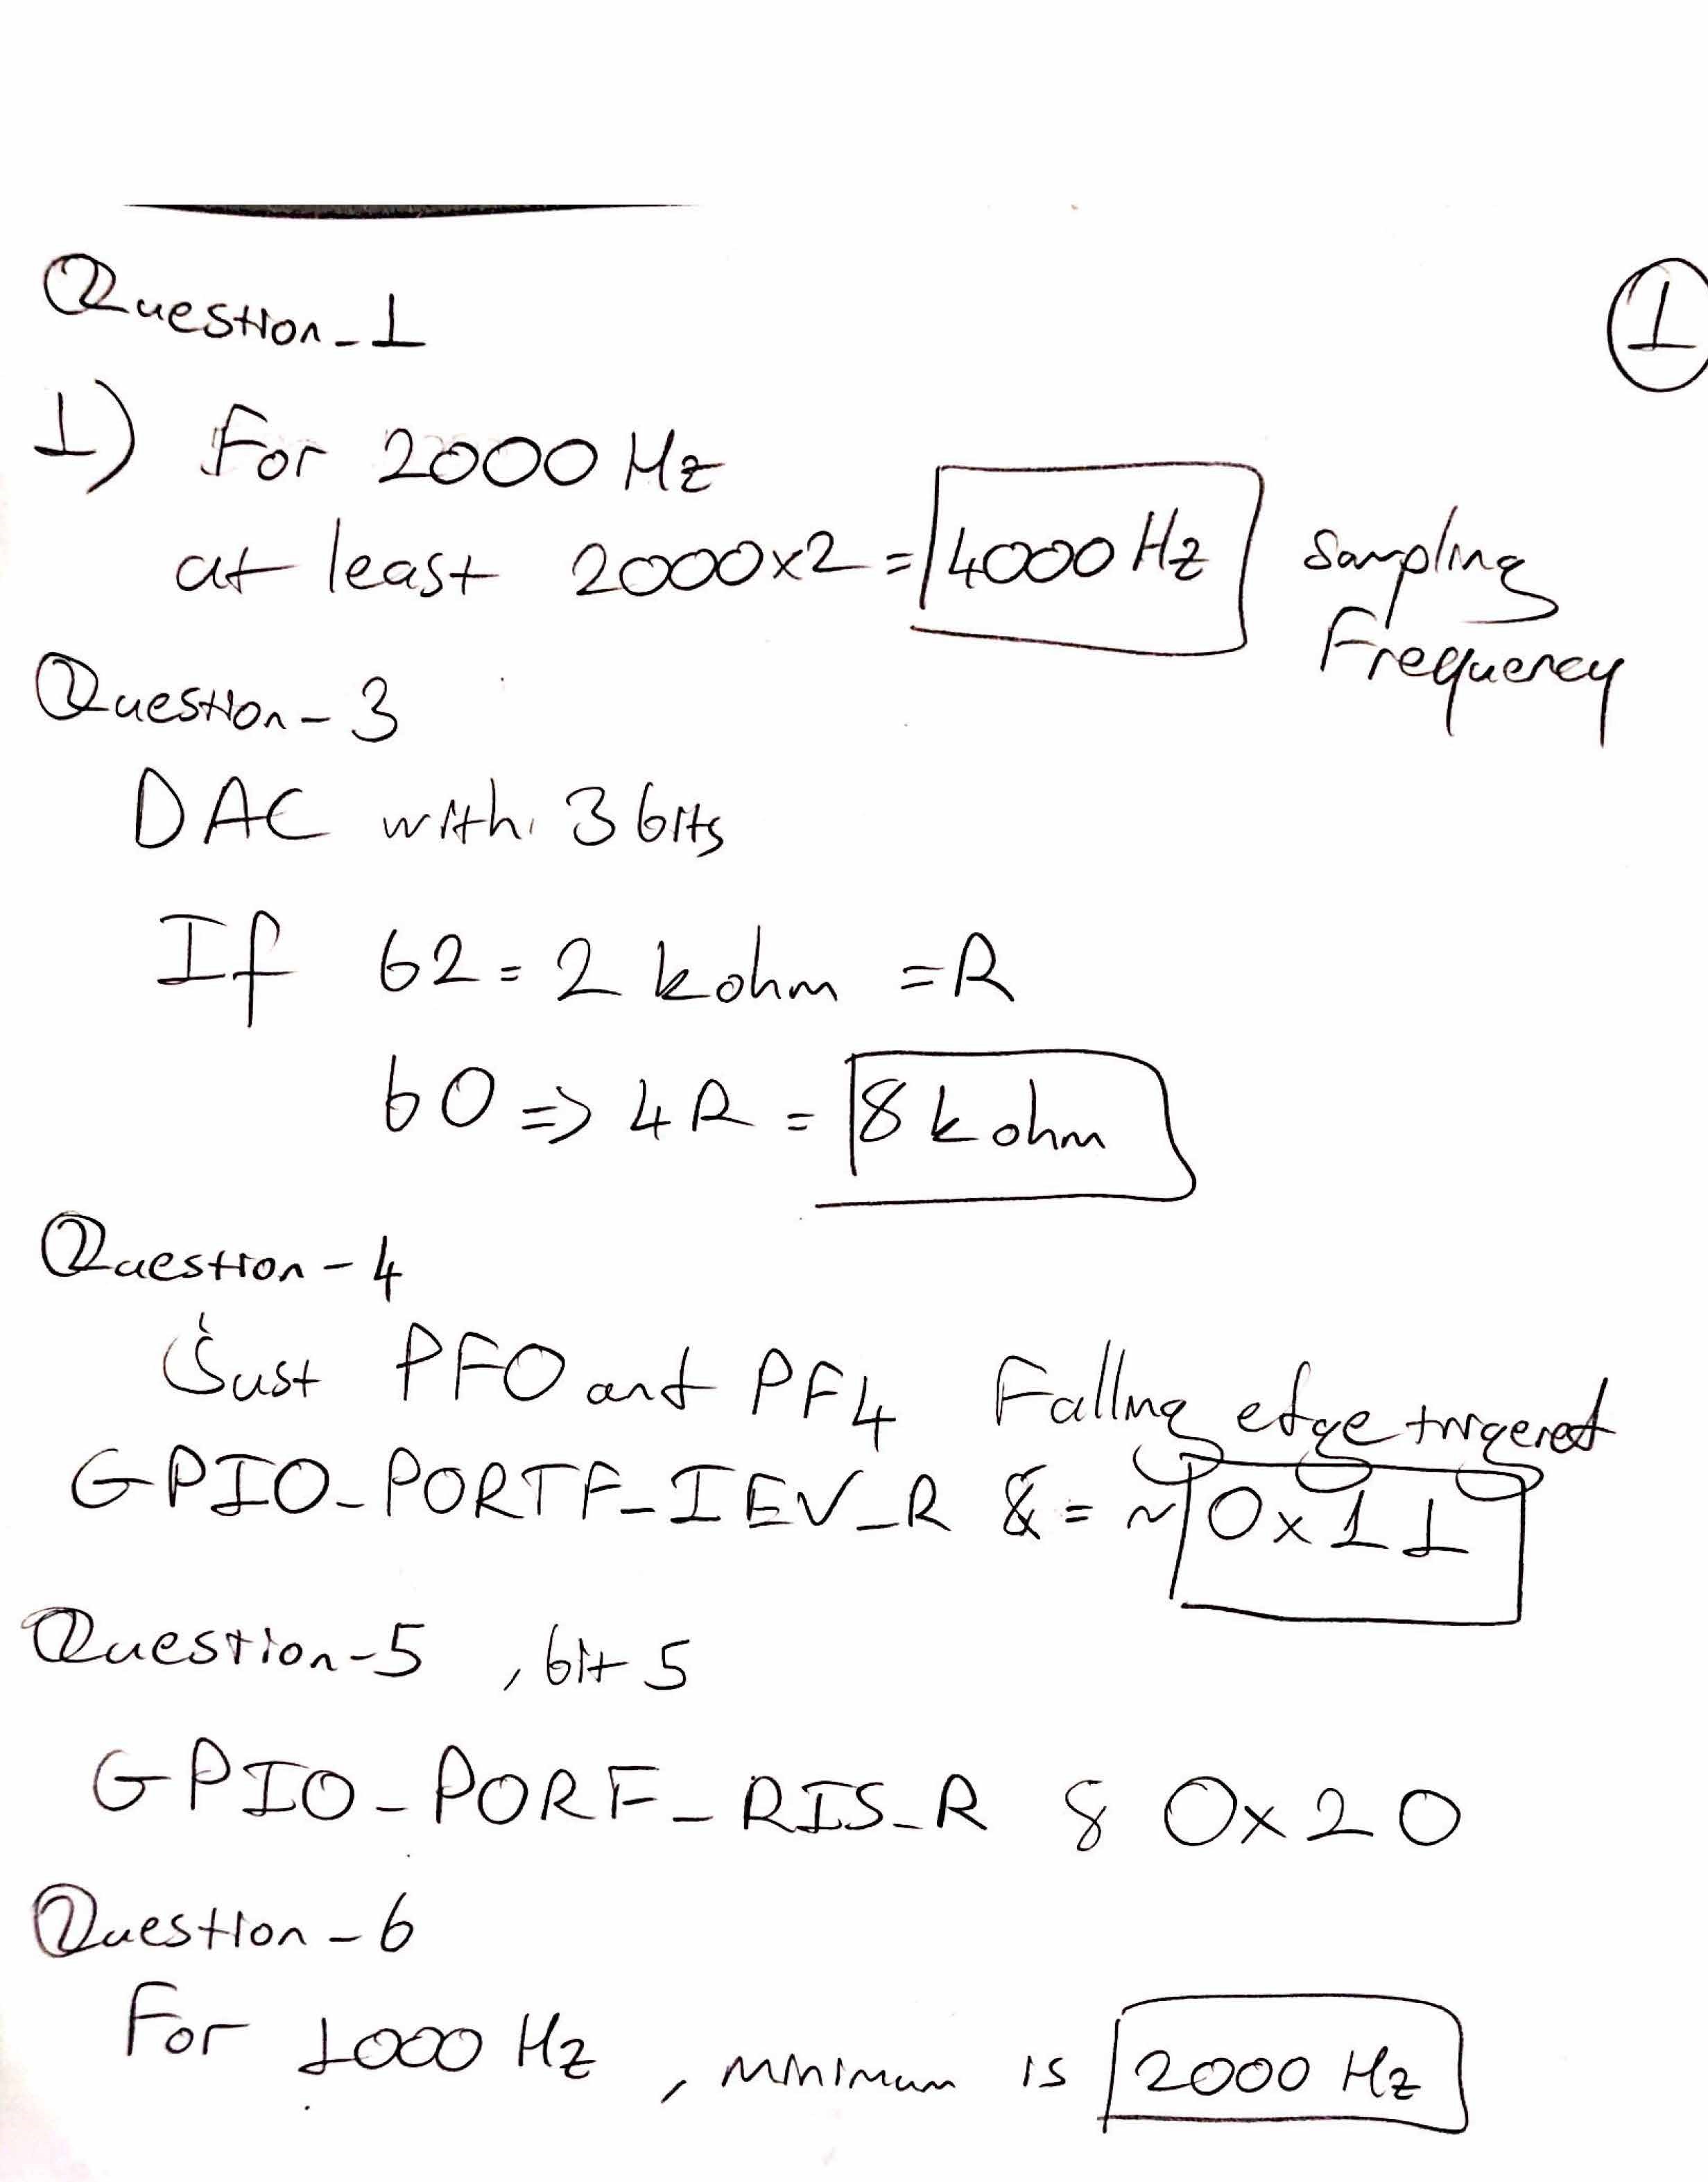 Question-1
①
1) For 2000 Hz
at least 2000x2 = 4000 Hz Sampling
Frequency
Question-3
DAC with 3 bits
If b2 = 2 kohm = R
b0 => 4R = 8 kohm
Question-4
Just PF0 and PF4 Falling edge trigered
GPIO_PORTF_IEV_R &= ~0x11
Question-5 , bit 5
GPIO_PORF_RIS_R & 0x20
Question-6
For 1000 Hz , minimum is 2000 Hz